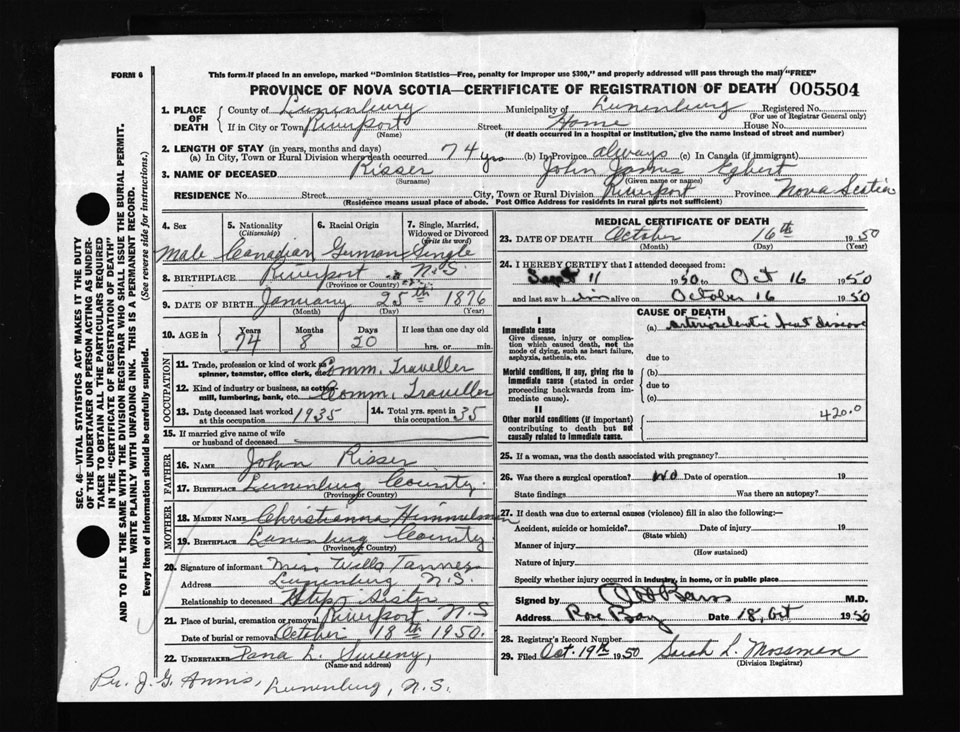 FORM 6
This form if placed in an envelope, marked "Dominion Statistics—Free, penalty for improper use $300," and properly addressed will pass through the mail "FREE"
PROVINCE OF NOVA SCOTIA—CERTIFICATE OF REGISTRATION OF DEATH 005504
SEC. 46—VITAL STATISTICS ACT MAKES IT THE DUTY
OF THE UNDERTAKER OR PERSON ACTING AS UNDER-
TAKER TO OBTAIN ALL THE PARTICULARS REQUIRED
IN THE "CERTIFICATE OF REGISTRATION OF DEATH"
AND TO FILE THE SAME WITH THE DIVISION REGISTRAR WHO SHALL ISSUE THE BURIAL PERMIT.
WRITE PLAINLY WITH UNFADING INK. THIS IS A PERMANENT RECORD.
Every item of Information should be carefully supplied. (See reverse side for instructions.)
1. PLACE OF DEATH
County of Lunenburg Municipality of Lunenburg Registered No.
(For use of Registrar General only)
If in City or Town Riverport Street Home House No.
(Name) (If death occurred in a hospital or institution, give its name instead of street and number)
2. LENGTH OF STAY (in years, months and days)
(a) In City, Town or Rural Division where death occurred 74 yrs (b) In Province always (c) In Canada (if immigrant)
3. NAME OF DECEASED Risser John James Egbert
(Surname) (Given name or names)
RESIDENCE No. Street City, Town or Rural Division Riverport Province Nova Scotia
(Residence means usual place of abode. Post Office Address for residents in rural parts not sufficient)
4. Sex 5. Nationality (Citizenship) 6. Racial Origin 7. Single, Married, Widowed or Divorced (write the word)
Male Canadian German Single
8. BIRTHPLACE Riverport N.S.
(Province or Country)
9. DATE OF BIRTH January 25th 1876
(Month) (Day) (Year)
10. AGE in Years Months Days If less than one day
74 8 20 hrs. or min.
OCCUPATION
11. Trade, profession or kind of work as spinner, teamster, office clerk, etc. Comm. Traveller
12. Kind of industry or business, as cotton mill, lumbering, bank, etc. Comm. Traveller
13. Date deceased last worked at this occupation 1935 14. Total yrs. spent in this occupation 35
15. If married give name of wife or husband of deceased
FATHER
16. NAME John Risser
17. BIRTHPLACE Lunenburg County
(Province or Country)
MOTHER
18. MAIDEN NAME Christianna Himmelman
19. BIRTHPLACE Lunenburg County
(Province or Country)
20. Signature of informant Miss Willa Tanner
Address Lunenburg N.S.
Relationship to deceased Step Sister
21. Place of burial, cremation or removal Riverport, N.S
Date of burial or removal October 18th 1950.
22. UNDERTAKER Dana L. Sweeny,
(Name and address)
Per. J. G. Lunenburg, N.S.
MEDICAL CERTIFICATE OF DEATH
23. DATE OF DEATH October 16th 1950
(Month) (Day) (Year)
24. I HEREBY CERTIFY that I attended deceased from:
Sept 11 1950 to Oct 16 1950
and last saw h im alive on October 16 1950
CAUSE OF DEATH
I
Immediate cause (a) arteriosclerotic heart disease
Give disease, injury or complica-
tion which caused death, not the
mode of dying, such as heart failure,
asphyxia, asthenia, etc.
due to
Morbid conditions, if any, giving rise to (b)
immediate cause (stated in order
proceeding backwards from im-
mediate cause).
due to
(c)
II
Other morbid conditions (if important)
contributing to death but not
causally related to immediate cause.
420.0
25. If a woman, was the death associated with pregnancy?
26. Was there a surgical operation? No Date of operation 19
State findings Was there an autopsy?
27. If death was due to external causes (violence) fill in also the following:—
Accident, suicide or homicide? Date of injury 19
(State which)
Manner of injury
(How sustained)
Nature of injury
Specify whether injury occurred in industry, in home, or in public place
Signed by M.D.
Address Rose Bay Date 18, Oct 1950
28. Registrar's Record Number
29. Filed Oct. 19th 1950 Sarah L. Mossman
(Division Registrar)